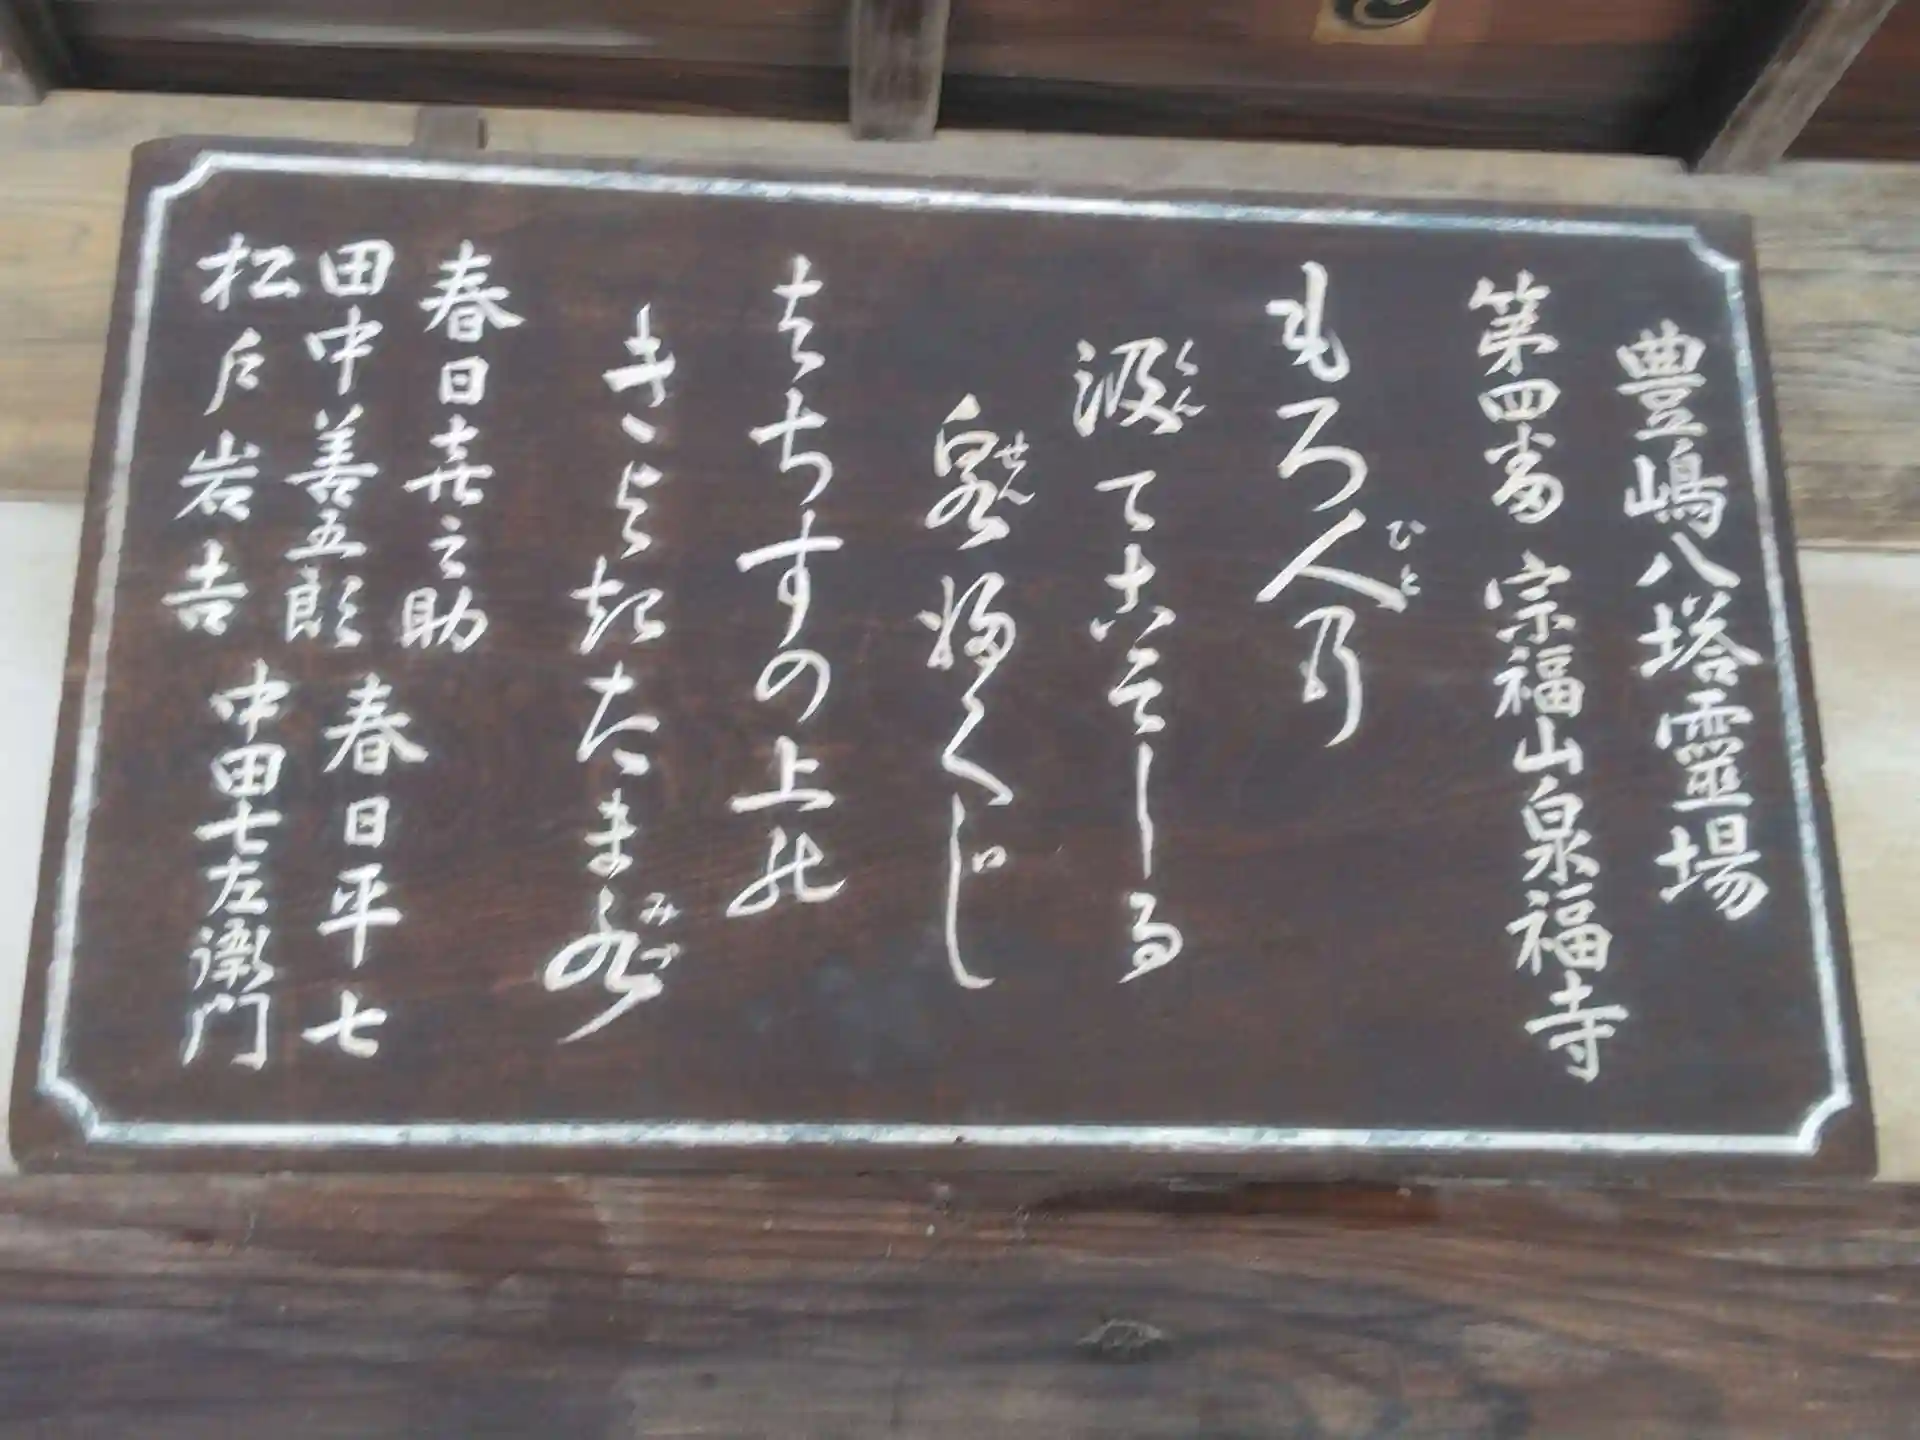 豊嶋八塔霊場
第四番 宗福山泉福寺
もろ人乃
汲てこそしる
泉ふくじ
はちすの上の
きよきたま水
春日喜之助
田中善五郎 春日平七
松戸岩吉 中田七左衛門